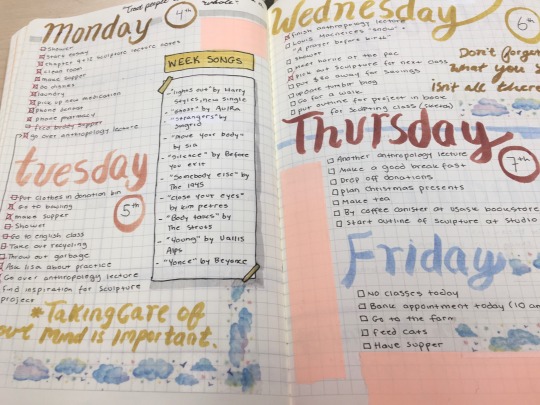 "Treat people
whole"
Monday
4th
shower
start essay
chapter 4+12 sculpture lecture notes
clean room
make supper
do dishes
laundry
pick up new medication
phone
phone pharmacy
feed kitty supper
go over anthropology lecture
tuesday
5th
put clothes in donation bin
Go to bowling
make supper
Shower
Go to english class
Take out recycling
Throw out garbage
Ask lisa about practice
Go over anthropology lecture
find inspiration for sculpture
project
*Taking care of
your mind is important.
WEEK SONGS
- "lights out" by Harry
Styles, new single
"strangers" by
Sigrid
- "move your body"
by sia
- "Silence" by Before
you exit
"Somebody else" by
The 1975
- "close your eyes"
by kim petras
- "Body talks" by
The Struts
- "Young" by Vallis
Alps
- "Yonce" by Beyonce
Wednesday
6th
finish anthropology lecture
Louis Macneice's "snow" +
"A prayer before birth"
shower
meet horse at the pac
pick out Sculpture for next class
put $20 away for savings
update tumblr blog
Go for a walk
put outline for project in base
for sculpting class
Don't forget
what you s
isn't all there
Thursday
7th
Another anthropology lecture
Make a good breakfast
Drop off donations
plan Christmas presents
Make tea
By coffee canister at usask bookstore
Start outline of Sculpture at Studio
Friday
No classes today
Bank appointment today (10 am
Go to the farm
Feed cats
Have supper